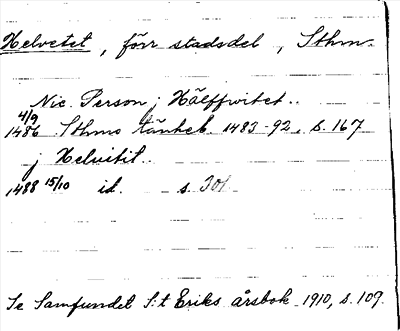 Helvetet, förr stadsdel, Sthm.
Nic. Person j Hälffwitet..
4/9
1486 Sthms tänkeb. 1483-92, s. 167
j Helvitit..
1488 15/10 id. s. 301
Se Samfundet S:t Eriks årsbok 1910, s. 109.